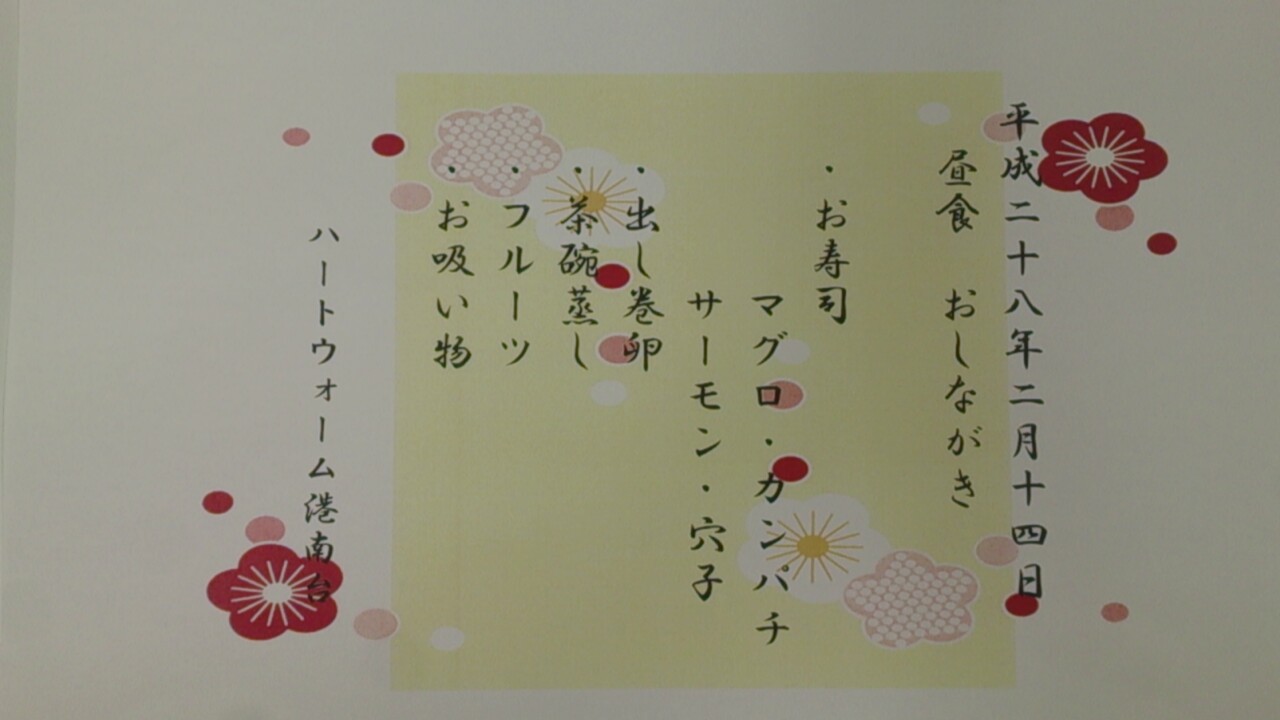 平成二十八年二月十四日
昼食　おしながき
・お寿司
マグロ・カンパチ
サーモン・穴子
・出し巻卵
・茶碗蒸し
・フルーツ
・お吸い物
ハートウォーム港南台